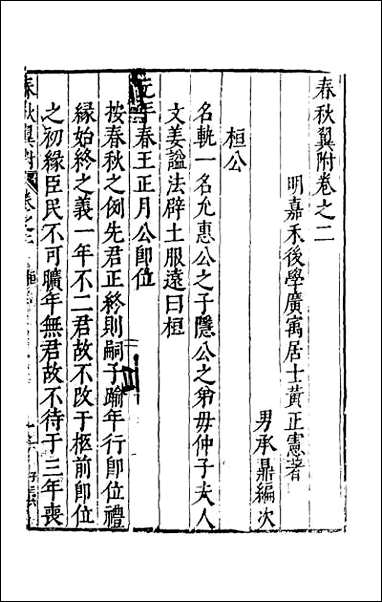 春秋翼附卷之二
明嘉禾後學廣寓居士黃正憲著
男承鼎編次
桓公
名軌一名允惠公之子隱公之弟毋仲子夫人
文姜諡法辟土服遠曰桓
元年春王正月公卽位
按春秋之例先君正終則嗣子踰年行卽位禮
緣始終之義一年不二君故不改于柩前卽位
之初緣臣民不可曠年無君故不待于三年喪
春秋翼附 卷之二 桓